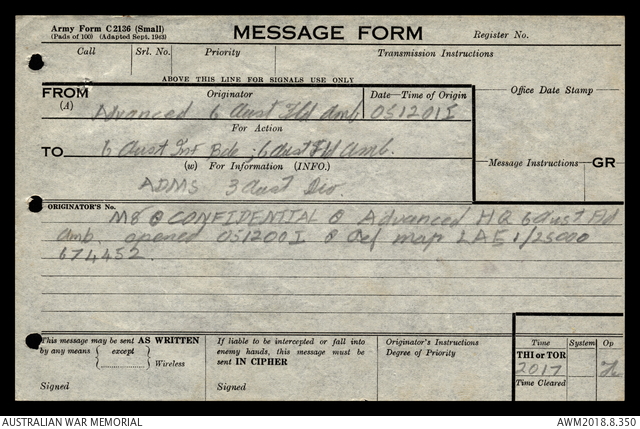 Army Form C2136 (Small)
(Pads of 100) (Adapted Sept. 1943)
MESSAGE FORM
Register No.
Call Srl. No. Priority Transmission Instructions
ABOVE THIS LINE FOR SIGNALS USE ONLY
FROM Originator Date—Time of Origin Office Date Stamp
(A) Advanced 6 Aust Fld Amb 051201I
For Action
TO 6 Aust Inf Bde ; 6 Aust Fld Amb.
(W) For Information (INFO.) Message Instructions GR
ADMS 3 Aust Div.
ORIGINATOR'S No.
M8 @ CONFIDENTIAL @ Advanced HQ 6 Aust Fld
Amb. opened 051200I @ Ref map LAE 1/25000
674452.
This message may be sent AS WRITTEN
by any means (except
Wireless
Signed
If liable to be intercepted or fall into
enemy hands, this message must be
sent IN CIPHER
Signed
Originator's Instructions
Degree of Priority
Time System Op
THI or TOR
2017
Time Cleared
AUSTRALIAN WAR MEMORIAL AWM2018.8.350